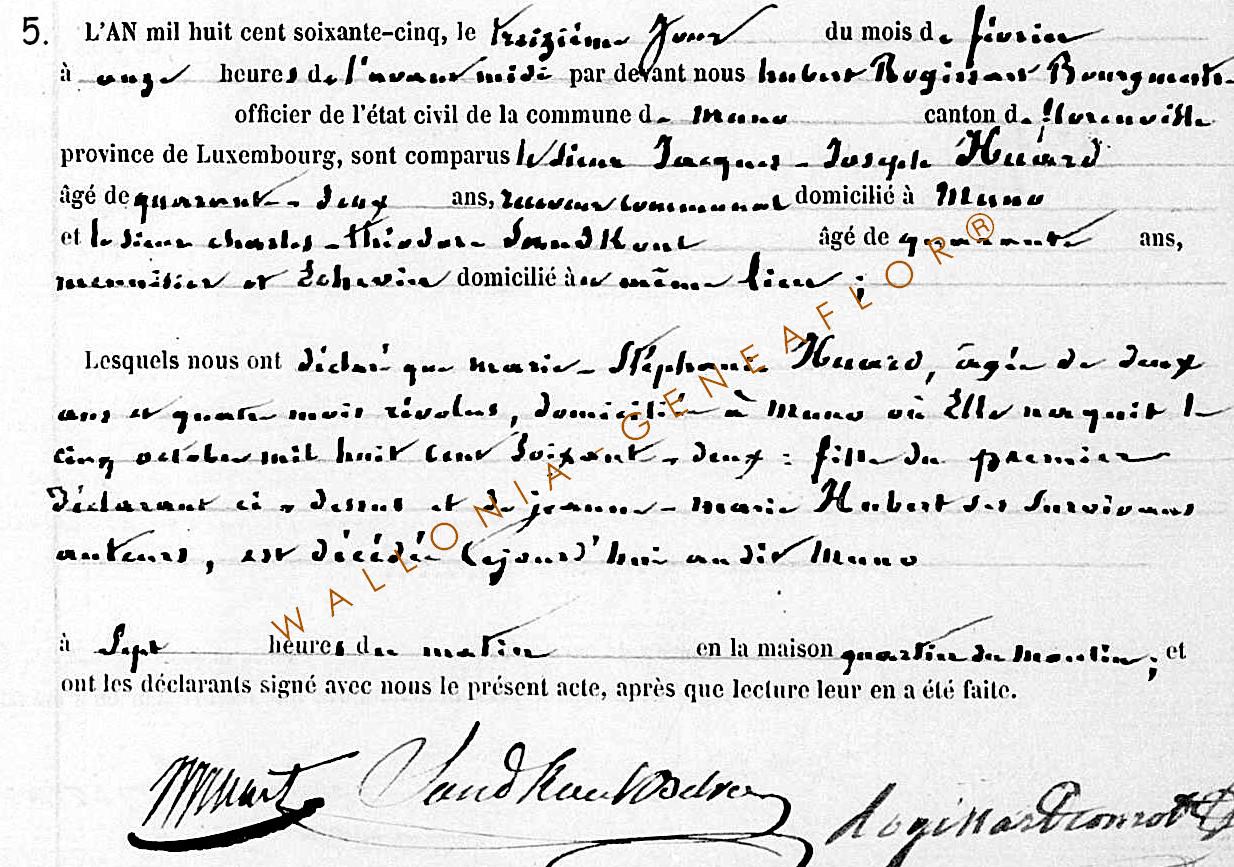 5. L'AN mil huit cent soixante-cinq, le treizième Jour du mois de février
à onze heures de l'avant midi par devant nous hubert Rogissart Bourgmestre
officier de l'état civil de la commune de muno canton de florenville
province de Luxembourg, sont comparus le sieur Jacques - Joseph Huard
âgé de quarante - deux ans, receveur communal domicilié à Muno
et le sieur charles - théodore Sandkoul âgé de quarante ans,
menuisier et Echevin domicilié au même lieu ;
Lesquels nous ont déclaré que marie - Stéphanie Huard, âgée de deux
ans et quatre mois révolus, domiciliée à Muno où Elle naquit le
cinq octobre mil huit cent soixante - deux : fille du premier
déclarant ci - dessus et de jeanne - marie Hubert ses survivans
auteurs, est décédée cejourd'hui audit Muno
à sept heures du matin en la maison quartier du moulin ; et
ont les déclarants signé avec nous le présent acte, après que lecture leur en a été faite.
WALLONIA - GENEAFLOR ®